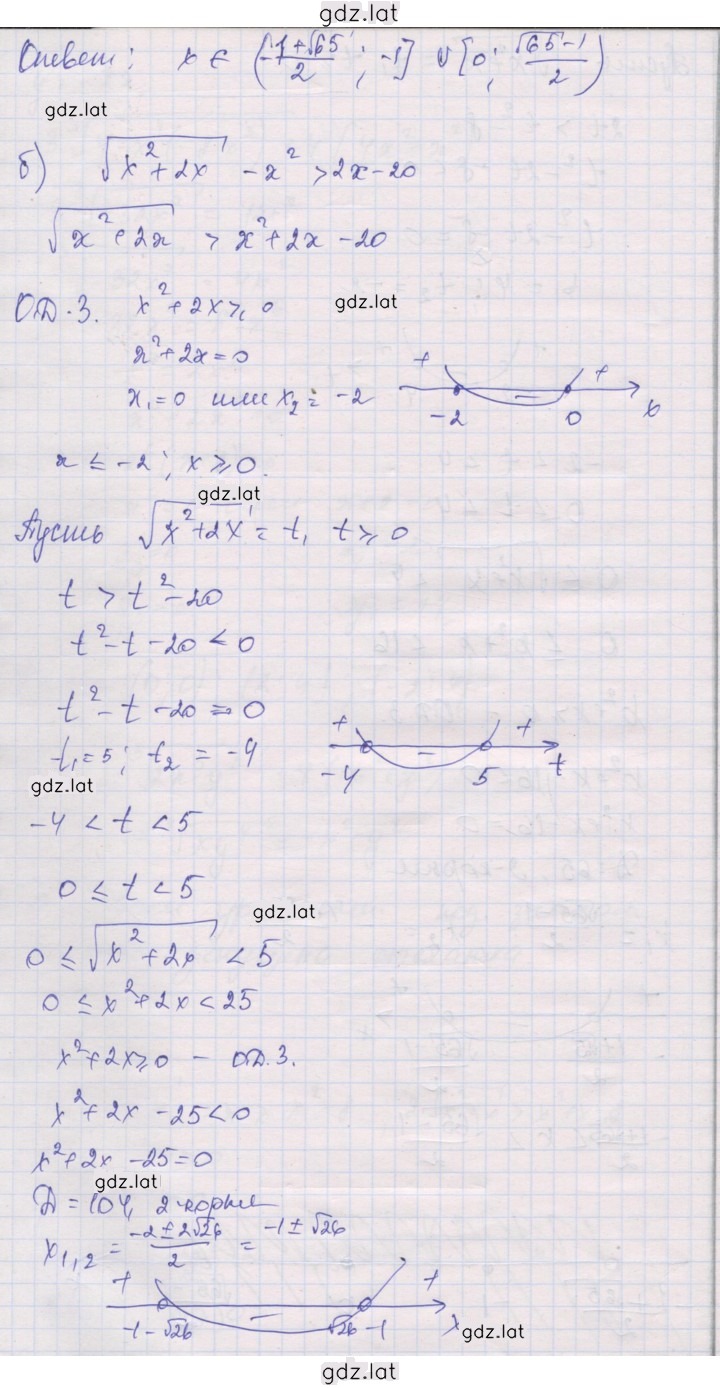 gdz.lat
Ответ: x ∈ (-1+√65/2; -1] ∪ [0; √65-1/2)
gdz.lat
б) √x²+2x - x² > 2x-20
√x²+2x > x²+2x-20
О.Д.З. x²+2x ≥ 0 gdz.lat
x²+2x=0
x₁=0 или x₂=-2
+ - +
-2 0 x
x ≤ -2; x ≥ 0.
gdz.lat
Пусть √x²+2x = t, t ≥ 0
t > t²-20
t²-t-20 < 0
t²-t-20=0
t₁=5; t₂=-4
+ - +
-4 5 t
gdz.lat
-4 < t < 5
0 ≤ t < 5
gdz.lat
0 ≤ √x²+2x < 5
0 ≤ x²+2x < 25
x²+2x ≥ 0 - О.Д.З.
x²+2x-25<0
x²+2x-25=0
gdz.lat
D=104, 2 корня
x₁,₂ = -2±2√26/2 = -1±√26
+ - +
-1-√26 √26-1 x
gdz.lat
gdz.lat